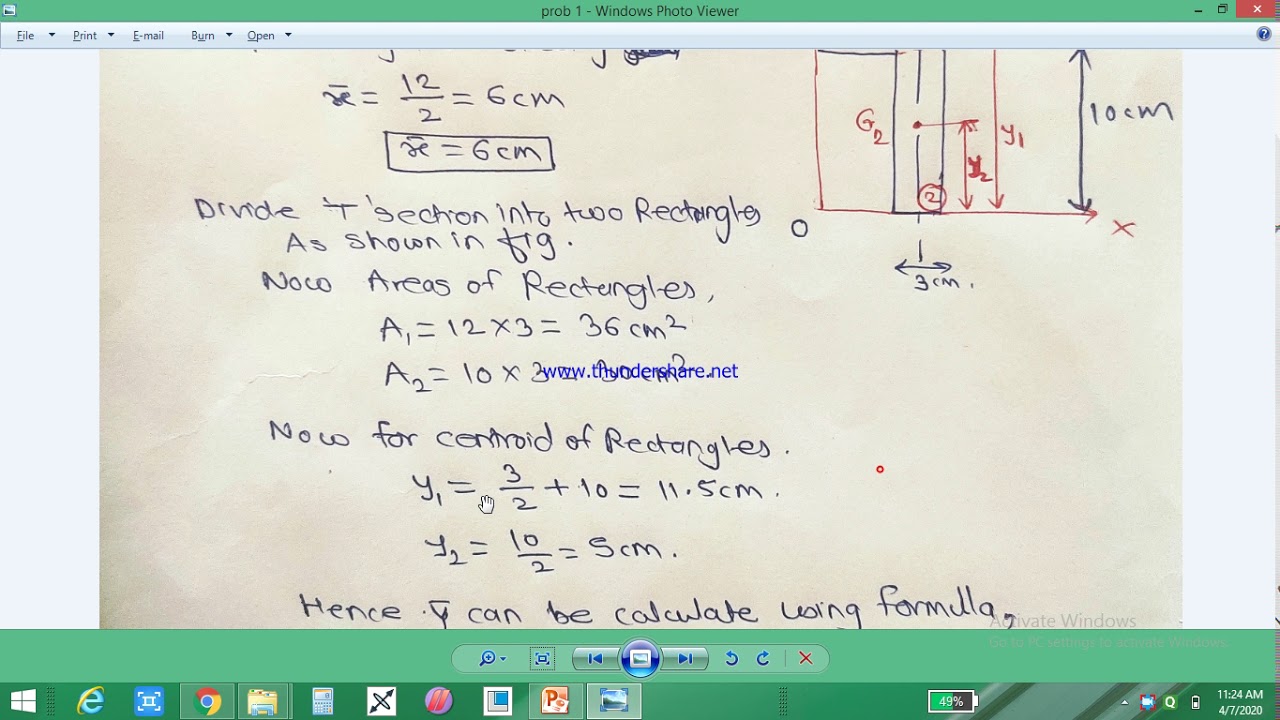 prob 1 - Windows Photo Viewer
File Print E-mail Burn Open
x̄ = 12/2 = 6cm
x̄ = 6cm
Divide 'T' section into two Rectangles
As shown in fig.
Now Areas of Rectangles,
A₁ = 12 × 3 = 36 cm²
A₂ = 10 × 3 = 30 cm²
www.thundershare.net
Now for centroid of Rectangles.
y₁ = 3/2 + 10 = 11.5cm.
y₂ = 10/2 = 5cm.
Hence ȳ can be calculate using formulla,
G₂
y₂
y₁
10cm
2
O
x
3cm.
Activate Windows
Go to PC settings to activate Windows.
49%
11:24 AM
4/7/2020